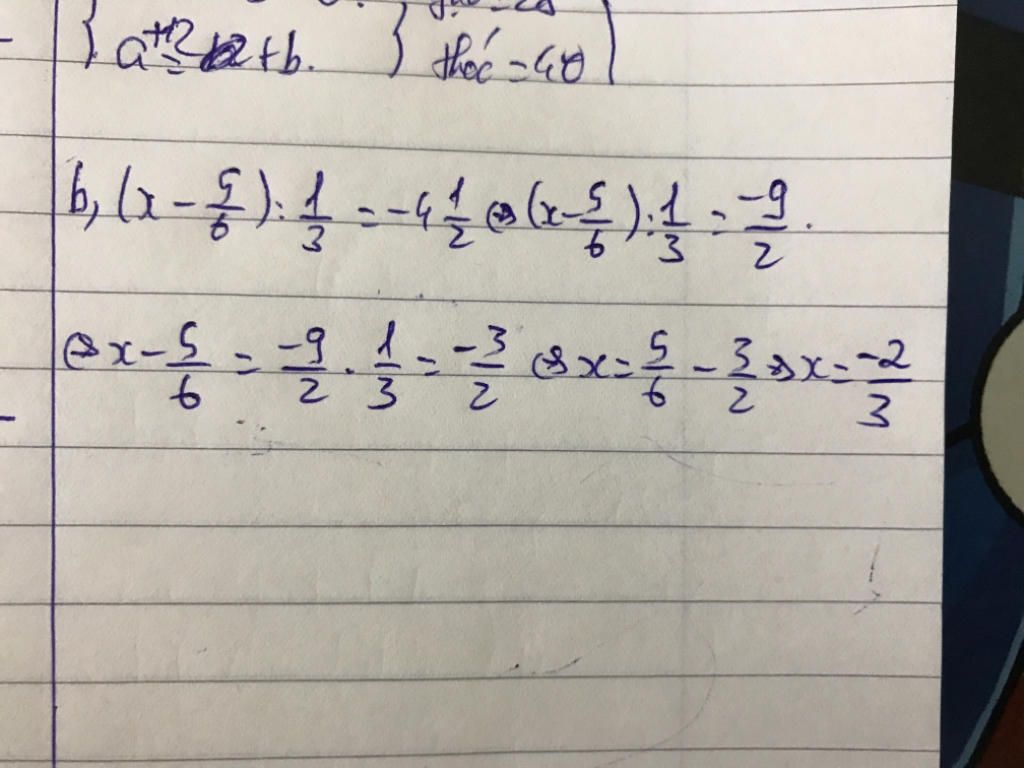 a+12 = +b. } thóc = 40
b, (x - 5/6) : 1/3 = -4 1/2 ⇔ (x - 5/6) : 1/3 = -9/2 .
⇔ x - 5/6 = -9/2 . 1/3 = -3/2 ⇔ x = 5/6 - 3/2 ⇔ x = -2/3